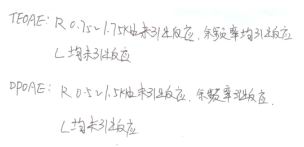 TEOAE: R 0.75~1.75KHz未引出反应,余频率均引出反应
L 均未引出反应
DPOAE: R 0.5~1.5KHz未引出反应,余频率引出反应,
L 均未引出反应